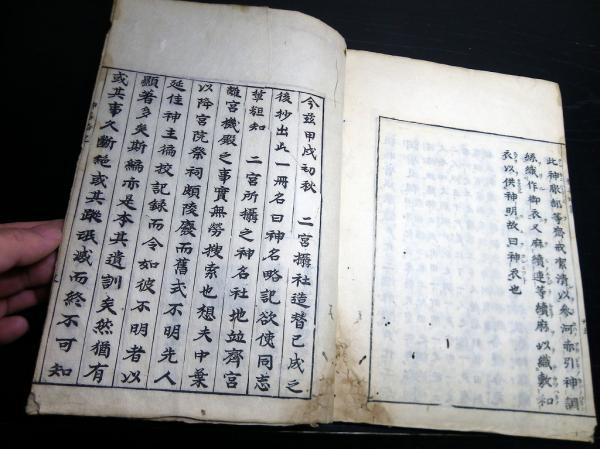 此神服部等齋戒潔清以参河赤引神調
絲織作御衣又麻績連等績麻以織敷和
衣以供神明故曰神衣也
今茲甲戌初秋　二宮攝社造替已成之
後抄出此一冊名曰神名略記欲使同志
輩粗知　二宮所攝之神名社地並齊宮
離宮機殿之事實無勞搜索也想夫中葉
以降宮院祭祠頗陵廢而舊式不明先人
延佳神主徧挍記録而令如彼不明者以
顯著多矣斯編亦是本其遺訓矣然猶有
或其事久斷絶或其蹤泯滅而終不可知